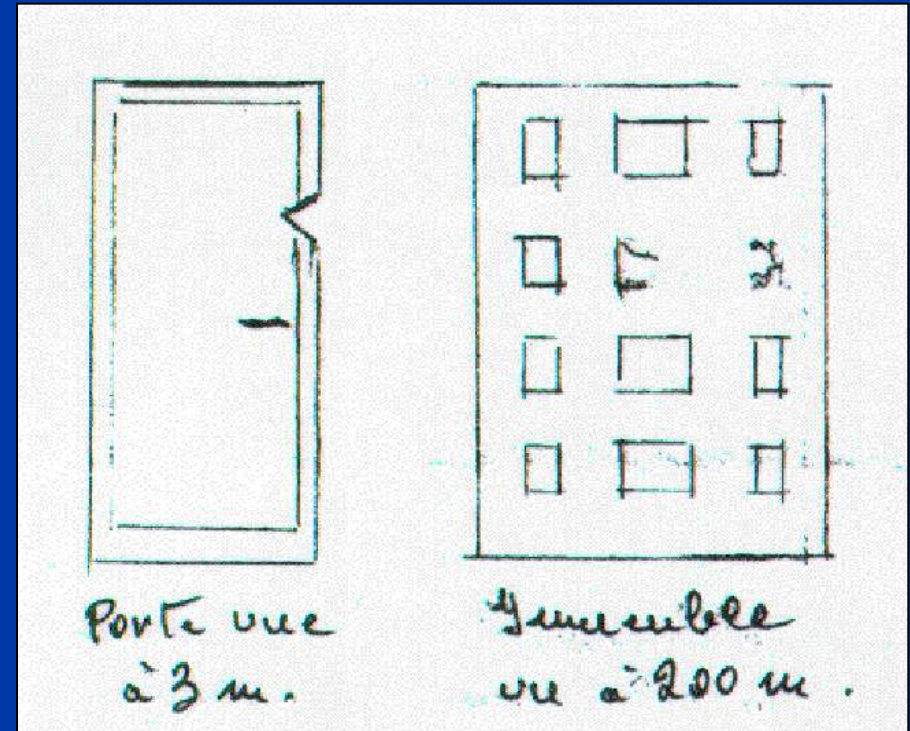 Porte vue
à 3 m.
Immeuble
vu à 200 m.